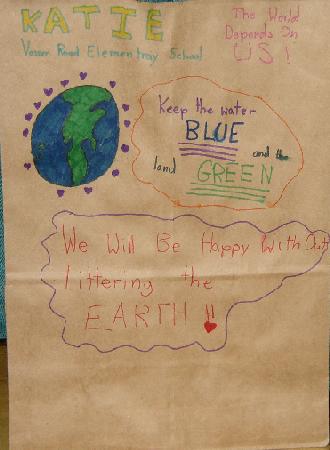 KATIE
Vassar Road Elementray School
The World
Depends On
US!
Keep the water
BLUE
and the
land GREEN
We Will Be Happy With Out
littering the
EARTH!!